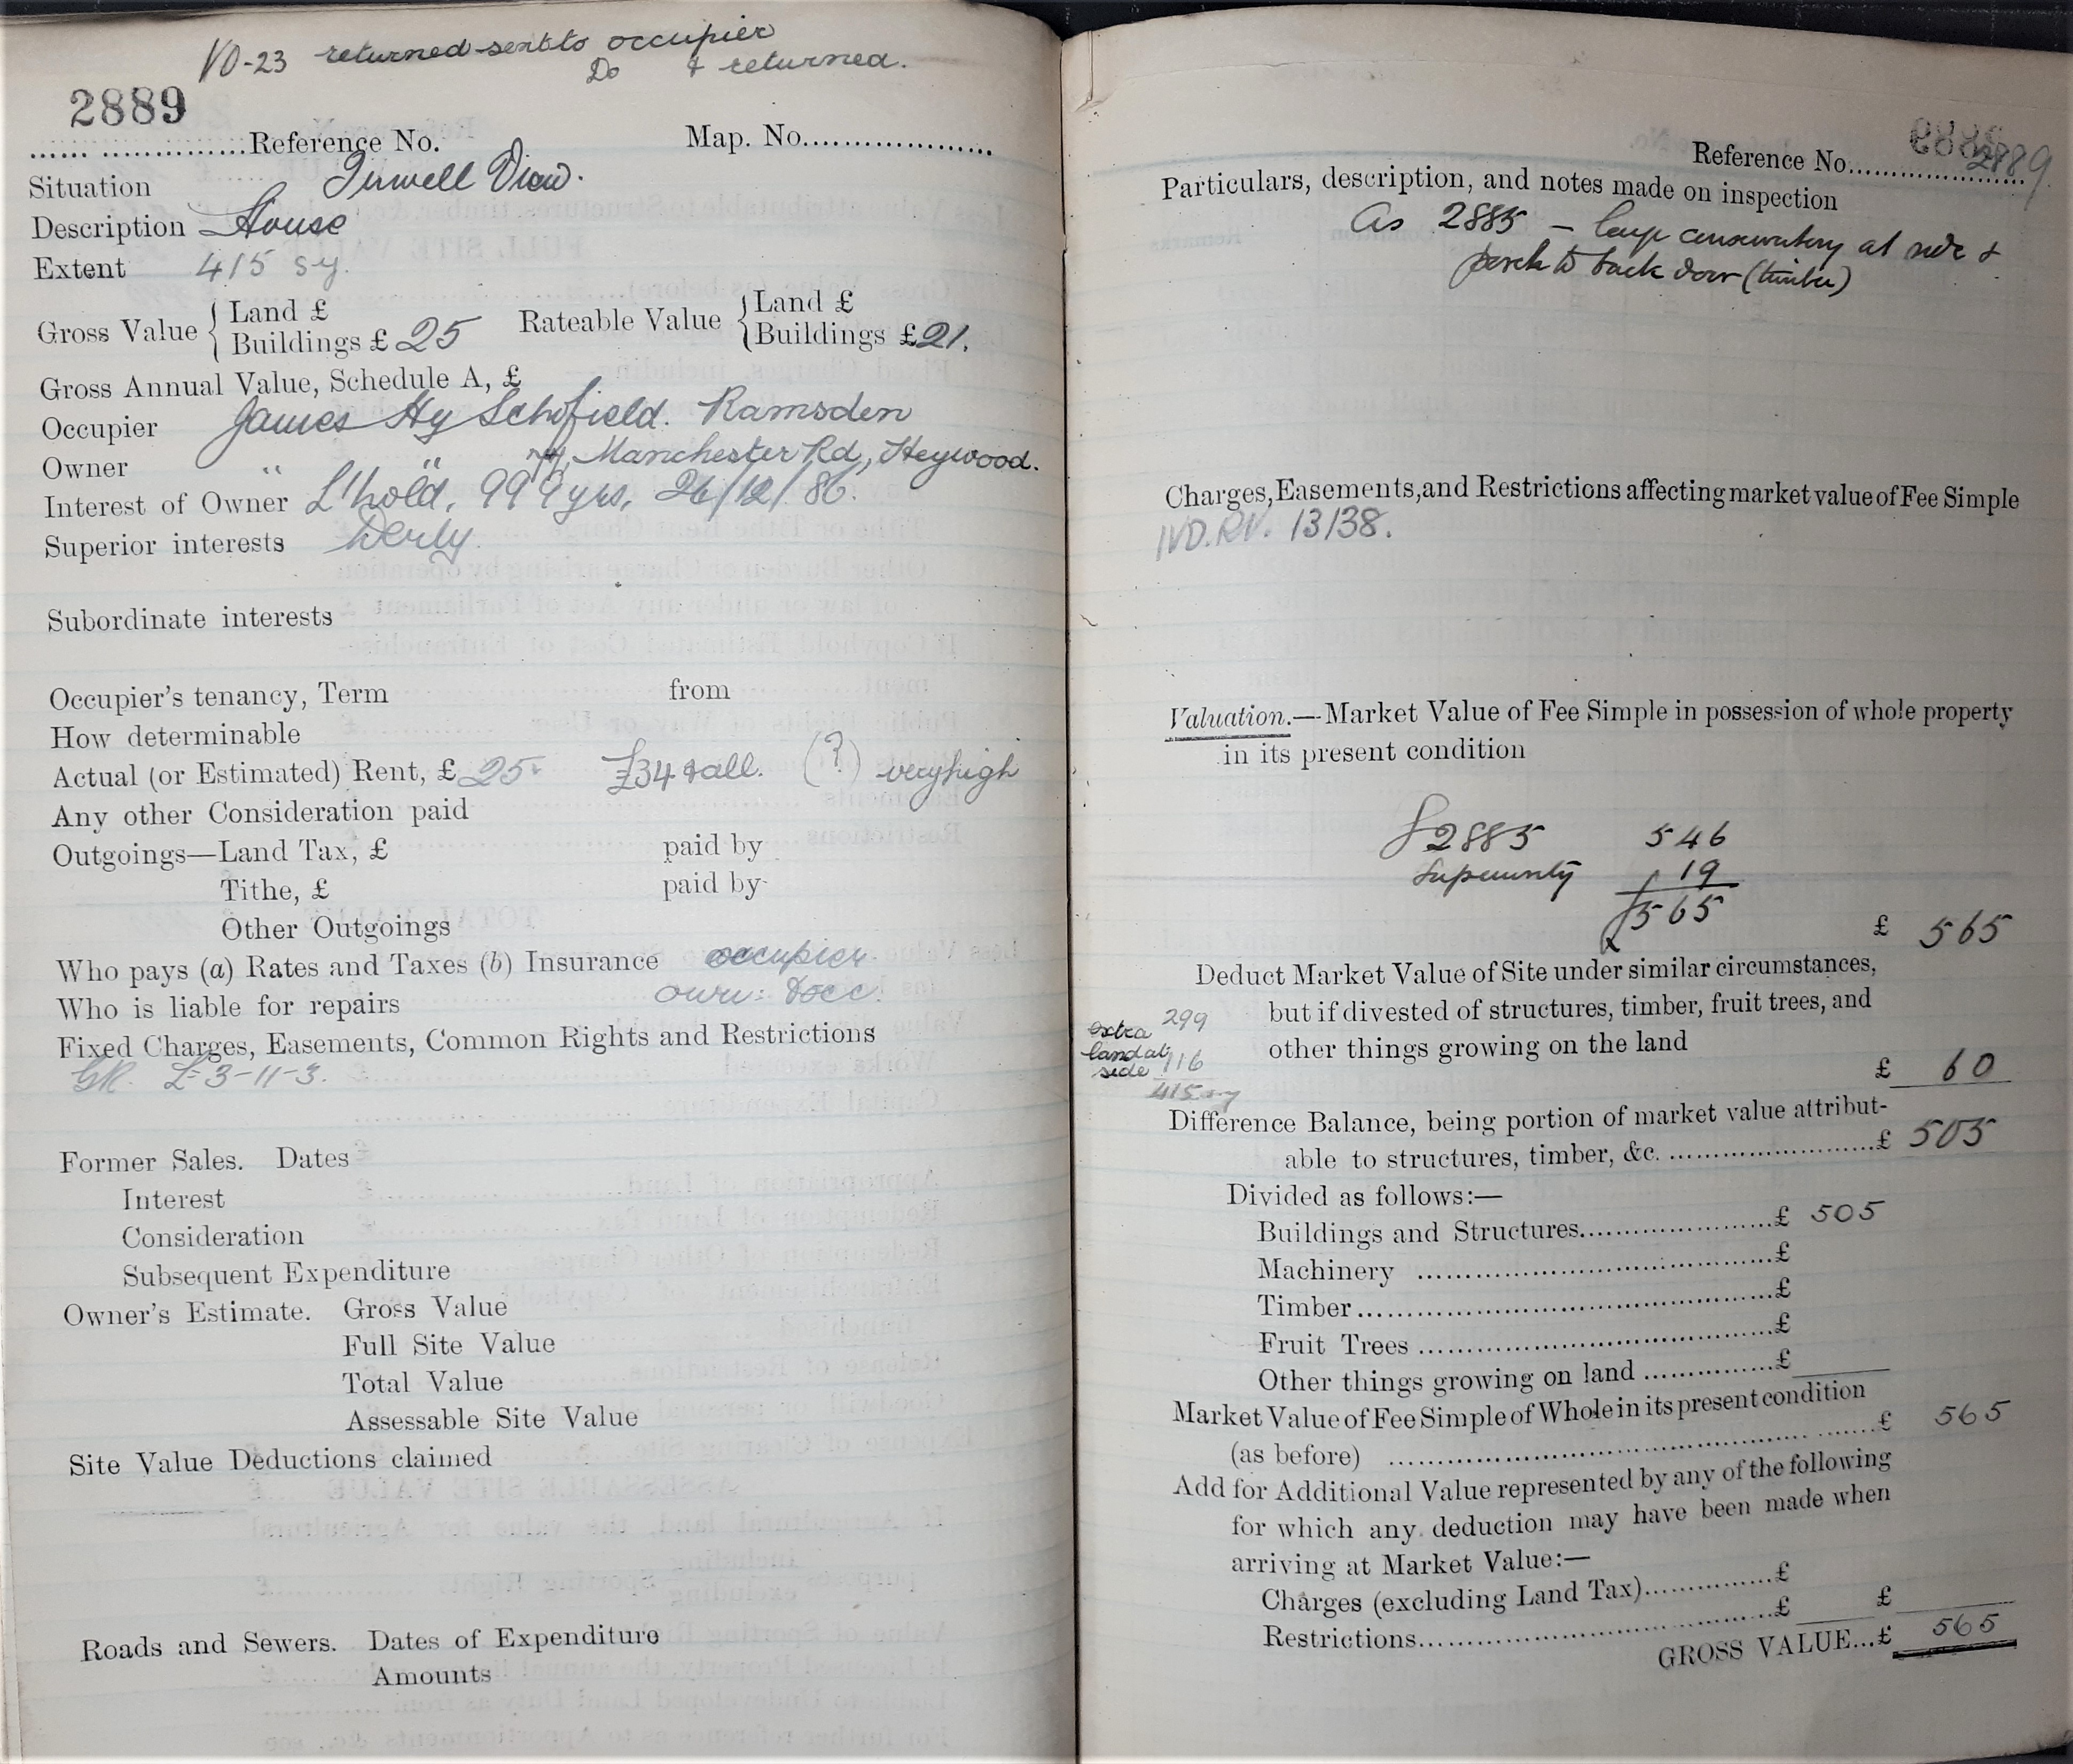 VO-23 returned sent to occupier
Do & returned.
2889
Reference No. Map. No.
Situation Irwell View.
Description House
Extent 415 sy.
Gross Value { Land £
Buildings £ 25
Rateable Value { Land £
Buildings £ 21.
Gross Annual Value, Schedule A, £
Occupier James Hy Schofield. Ramsden
Owner " " Manchester Rd, Heywood.
Interest of Owner L'hold, 999 yrs, 26/12/86.
Superior interests Derby
Subordinate interests
Occupier's tenancy, Term from
How determinable
Actual (or Estimated) Rent, £ 25 £34 & all. (?) very high
Any other Consideration paid
Outgoings—Land Tax, £ paid by
Tithe, £ paid by
Other Outgoings
Who pays (a) Rates and Taxes (b) Insurance occupier
Who is liable for repairs own: & occ.
Fixed Charges, Easements, Common Rights and Restrictions
GR. £3-11-3.
Former Sales. Dates
Interest
Consideration
Subsequent Expenditure
Owner's Estimate. Gross Value
Full Site Value
Total Value
Assessable Site Value
Site Value Deductions claimed
Roads and Sewers. Dates of Expenditure
Amounts
Reference No. 2889
Particulars, description, and notes made on inspection
As 2885 – large conservatory at side &
porch to back door (timber)
Charges, Easements, and Restrictions affecting market value of Fee Simple
IVD.RV. 13/38.
Valuation.—Market Value of Fee Simple in possession of whole property
in its present condition
2885 546
Superiority 19
£565
£ 565
Deduct Market Value of Site under similar circumstances,
but if divested of structures, timber, fruit trees, and
other things growing on the land
£ 60
extra 299
land at
side 116
415 sy
Difference Balance, being portion of market value attribut-
able to structures, timber, &c. £ 505
Divided as follows:—
Buildings and Structures £ 505
Machinery £
Timber £
Fruit Trees £
Other things growing on land £
Market Value of Fee Simple of Whole in its present condition
(as before) £ 565
Add for Additional Value represented by any of the following
for which any deduction may have been made when
arriving at Market Value:—
Charges (excluding Land Tax) £
Restrictions £ £
GROSS VALUE...£ 565